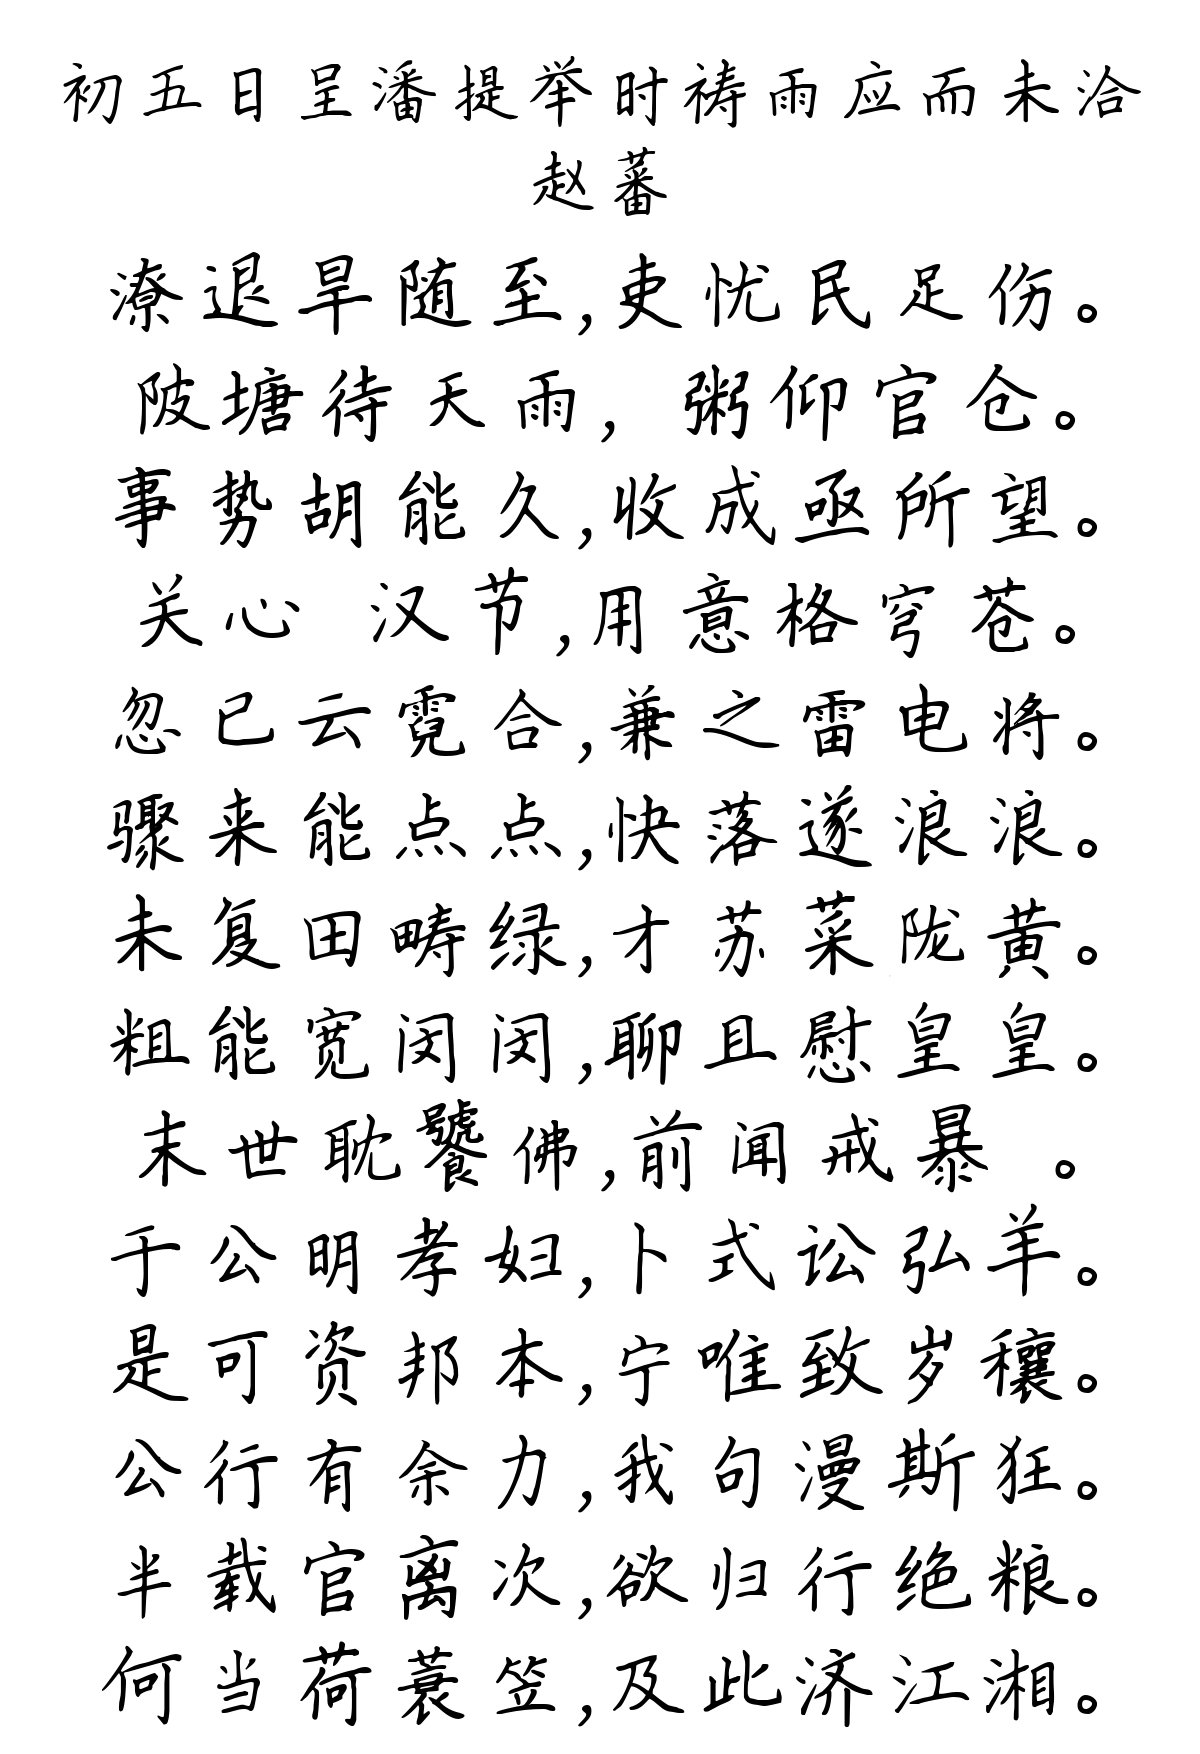 初五日呈潘提举时祷雨应而未洽
赵蕃
潦退旱随至,吏忧民足伤。
陂塘待天雨,粥仰官仓。
事势胡能久,收成亟所望。
关心汉节,用意格穹苍。
忽已云霓合,兼之雷电将。
骤来能点点,快落遂浪浪。
未复田畴绿,才苏菜陇黄。
粗能宽闵闵,聊且慰皇皇。
末世耽饕佛,前闻戒暴。
于公明孝妇,卜式讼弘羊。
是可资邦本,宁唯致岁穰。
公行有余力,我句漫斯狂。
半载官离次,欲归行绝粮。
何当荷蓑笠,及此济江湘。